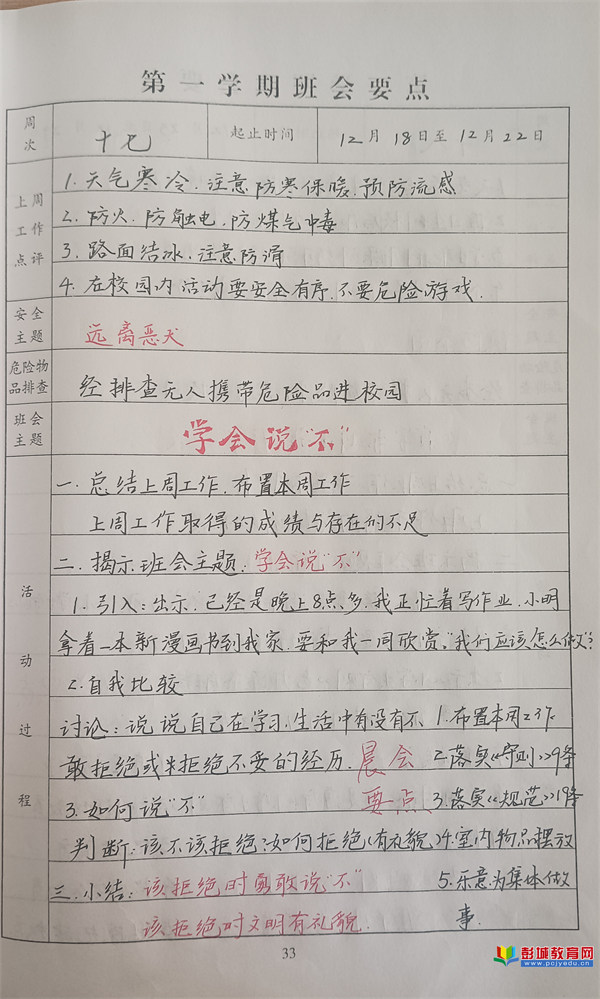 第一学期班会要点
周次 十七 起止时间 12月18日至12月22日
上周工作点评
1. 天气寒冷.注意防寒保暖.预防流感
2. 防火.防触电.防煤气中毒
3. 路面结冰.注意防滑
4. 在校园内活动要安全有序.不要危险游戏.
安全主题 远离恶犬
危险物品排查 经排查无人携带危险品进校园
班会主题 学会说"不"
活动过程
一.总结上周工作.布置本周工作
上周工作取得的成绩与存在的不足
二.揭示班会主题:学会说"不"
1. 引入:出示.已经是晚上8点多.我正忙着写作业.小明
拿着一本新漫画书到我家.要和我一同欣赏."我们应该怎么做"?
2. 自我比较
讨论:说说自己在学习.生活中有没有不
敢拒绝或拒绝不妥的经历.
3. 如何说"不"
判断:该不该拒绝;如何拒绝(有礼貌)
三.小结:该拒绝时勇敢说"不"
该拒绝时文明有礼貌.
晨会
要点
1. 布置本周工作
2. 落实《守则》9条
3. 落实《规范》19条
4. 室内物品摆放
5. 乐意为集体做
事.
33
彭城教育网
www.pcjyedu.cn